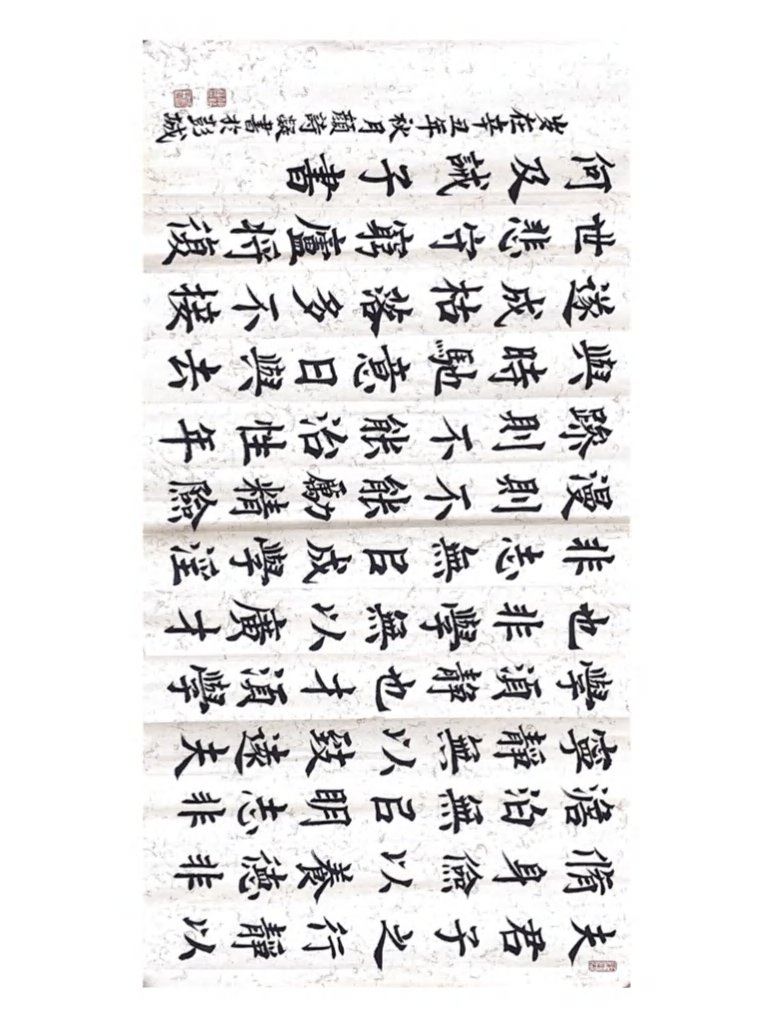 夫君子之行靜以
脩身儉以養德非
澹泊無㠯明志非
寧靜無以致遠夫
學須靜也才須學
也非學無以廣才
非志無㠯成學淫
漫則不能勵精險
躁則不能治性年
與時馳意日與去
遂成枯落多不接
世悲守窮廬将復
何及誡子書
岁在辛丑年秋月顏詩凝書於彭城